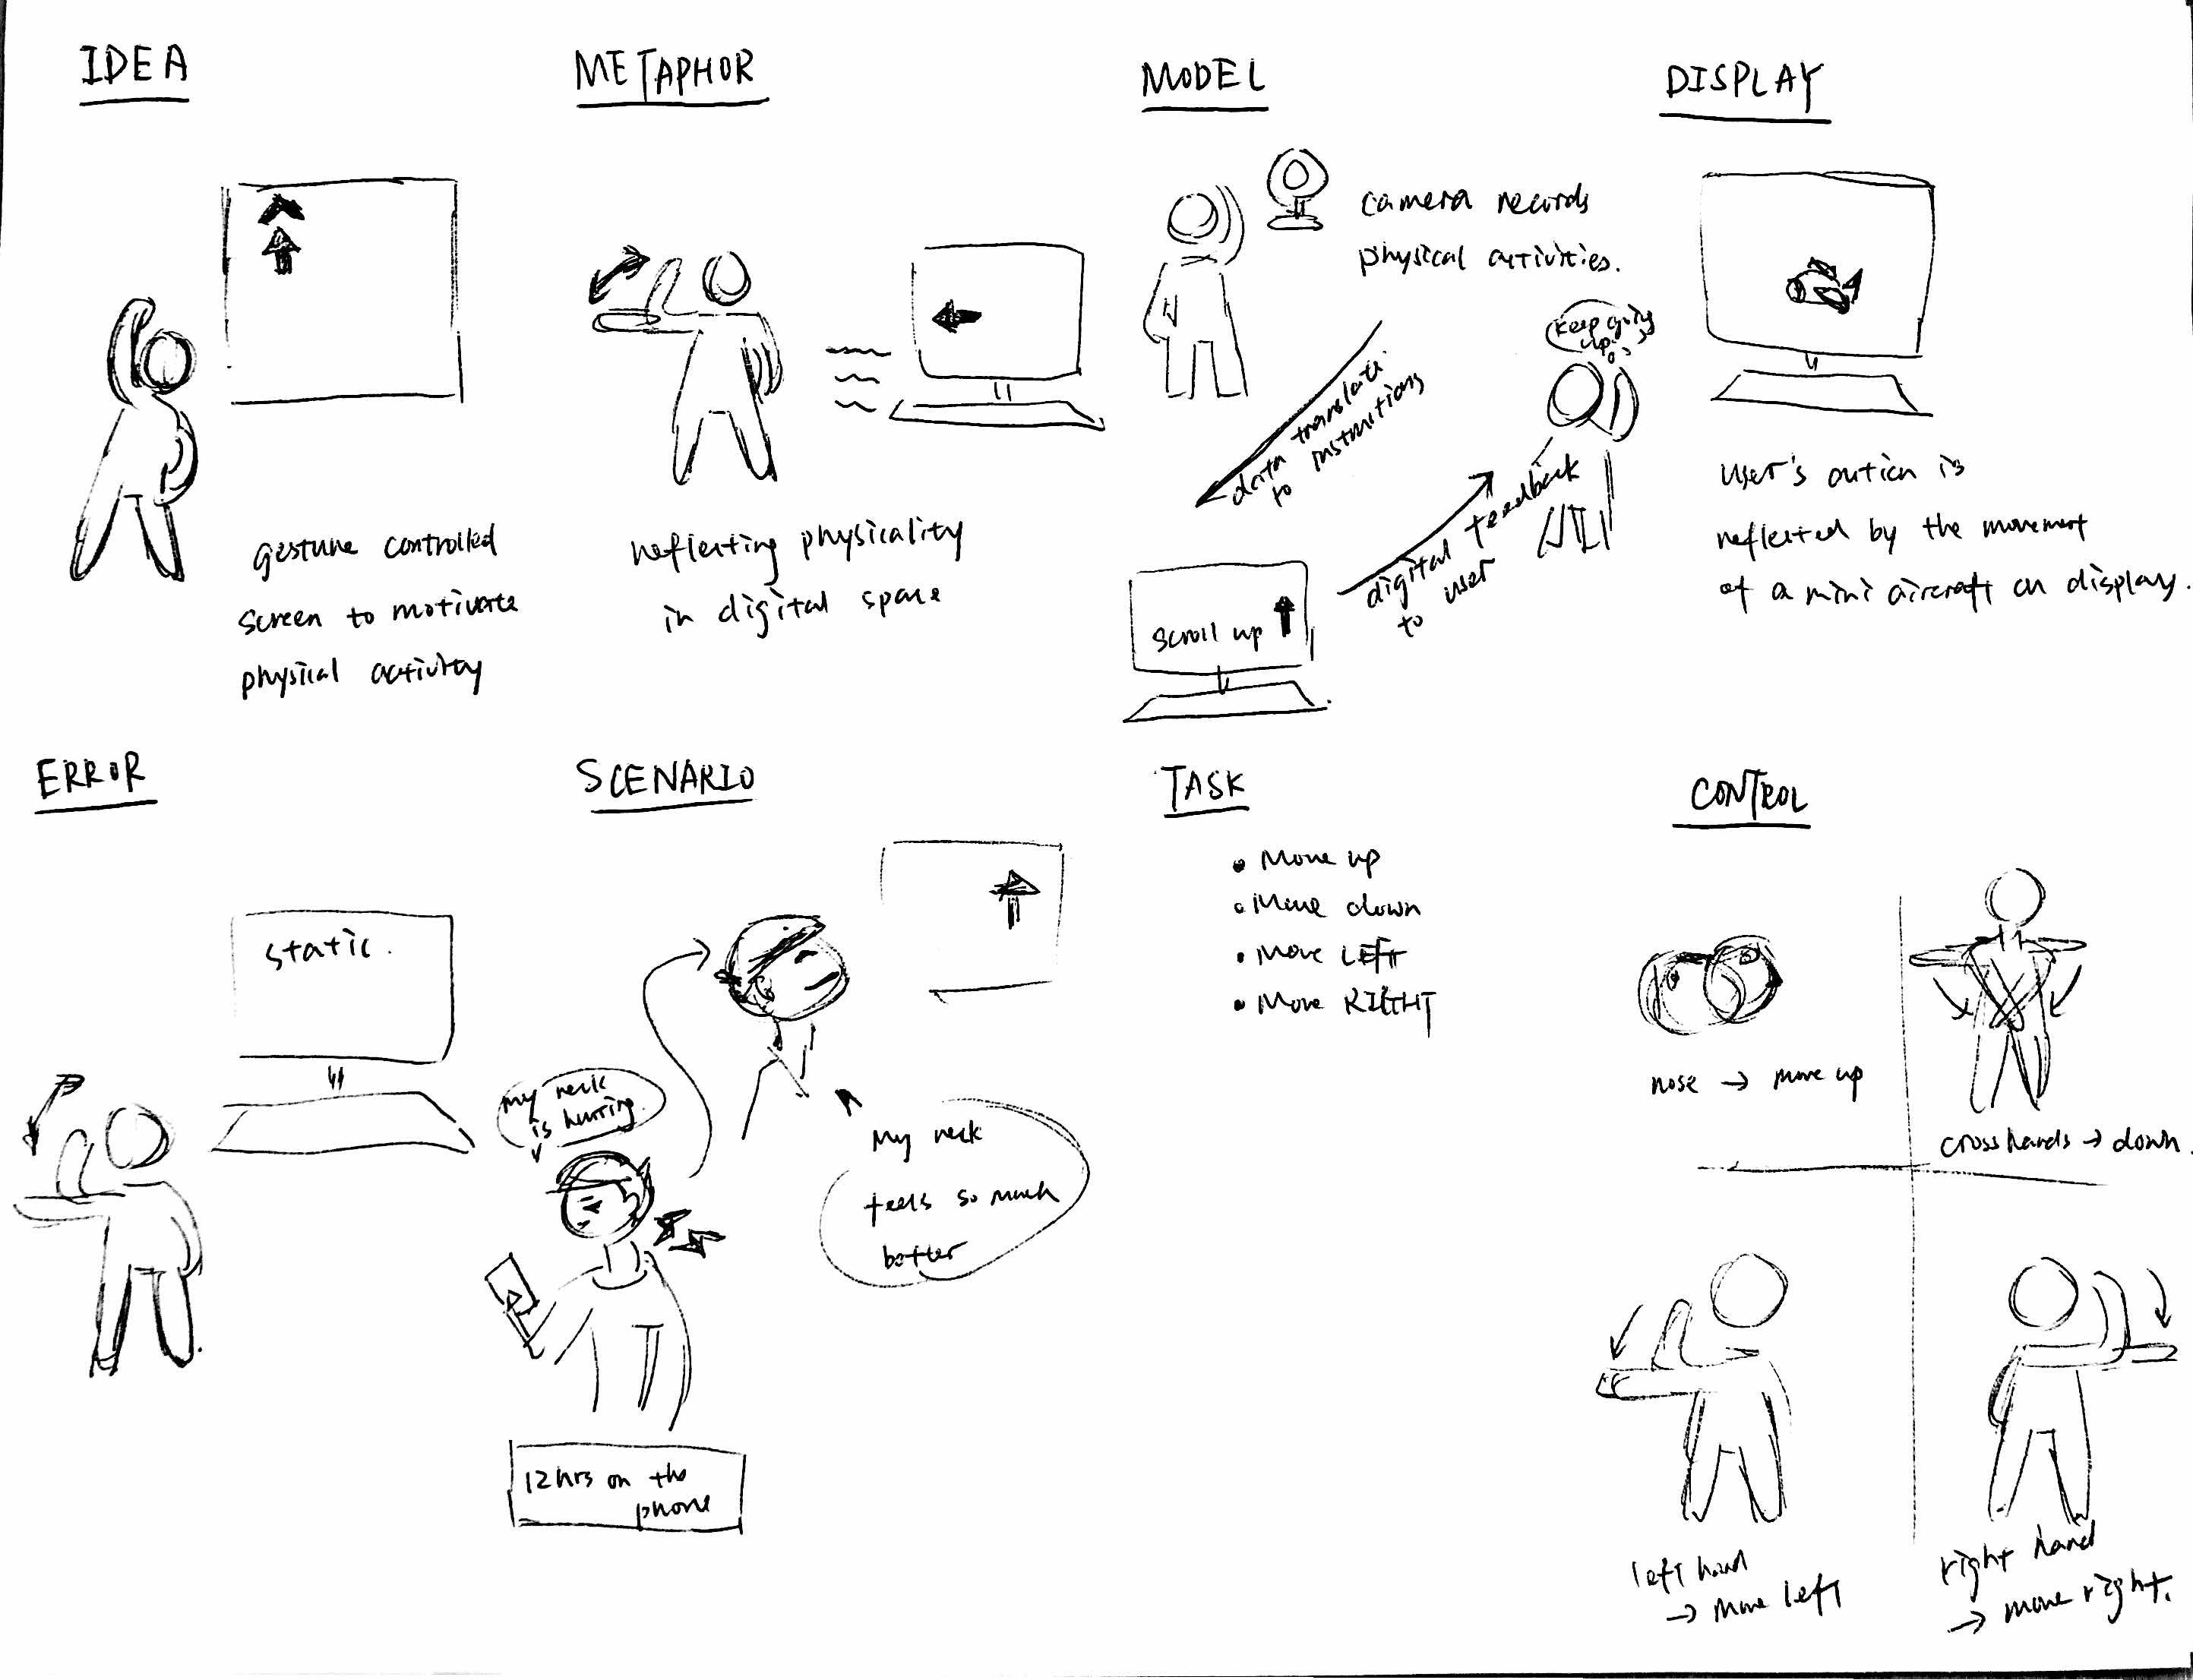 IDEA
gesture controlled
screen to motivate
physical activity
METAPHOR
reflecting physicality
in digital space
MODEL
camera records
physical activities.
data translate
to instructions
scroll up
digital feedback
to user
DISPLAY
keep going
up
user's action is
reflected by the movement
of a mini aircraft on display.
ERROR
static.
SCENARIO
my neck
is hurting.
12hrs on the
phone
My neck
feels so much
better
TASK
• Move up
• Move down
• Move LEFT
• Move RIGHT
CONTROL
nose → move up
cross hands → down.
left hand
→ move left
right hand
→ move right.